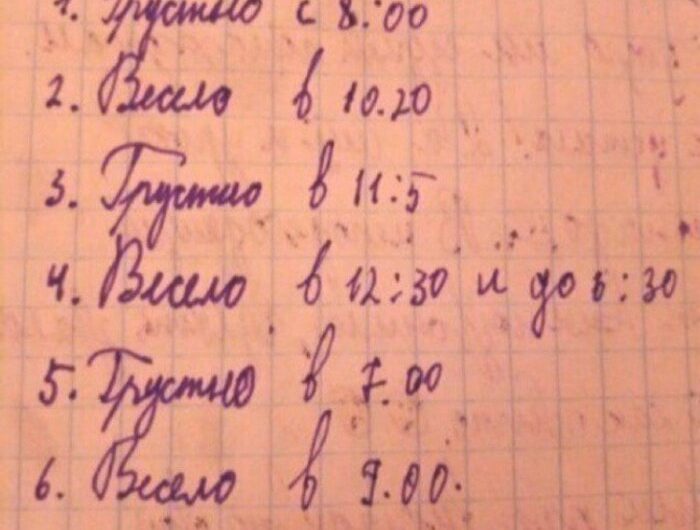 1. Грустно с 8:00
2. Весело в 10.20
3. Грустно в 11:5
4. Весело в 12:30 и до 6:30
5. Грустно в 7.00
6. Весело в 9.00.